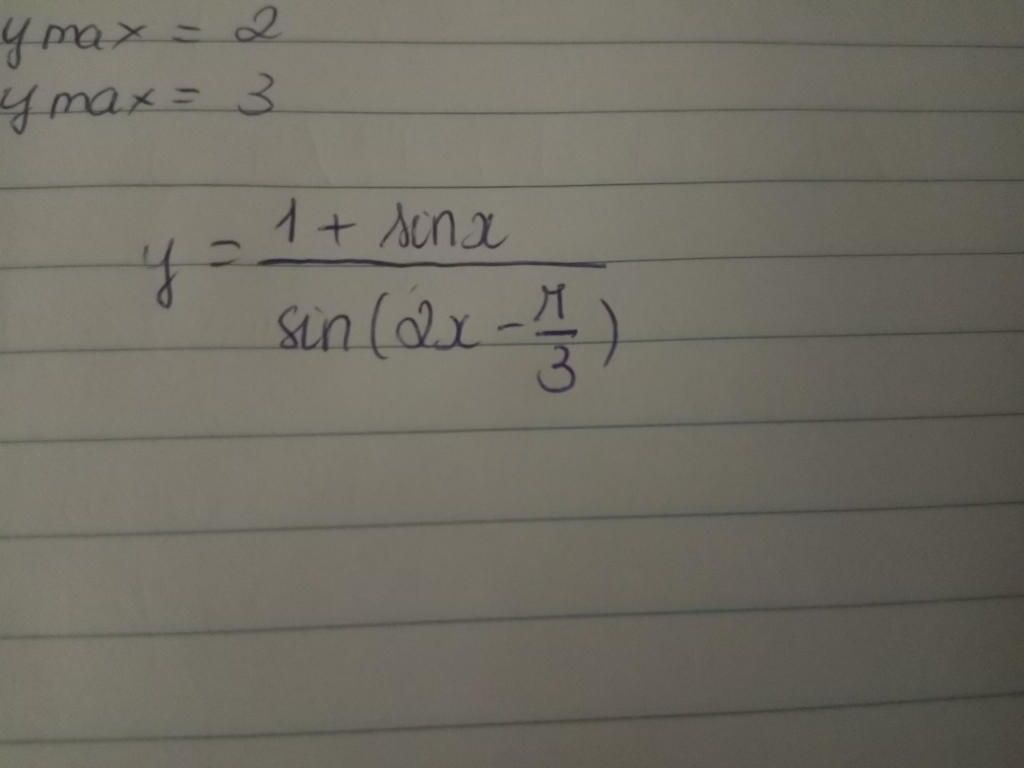 y max = 2
y max = 3
y = \frac{1 + sinx}{sin(2x - \frac{π}{3})}